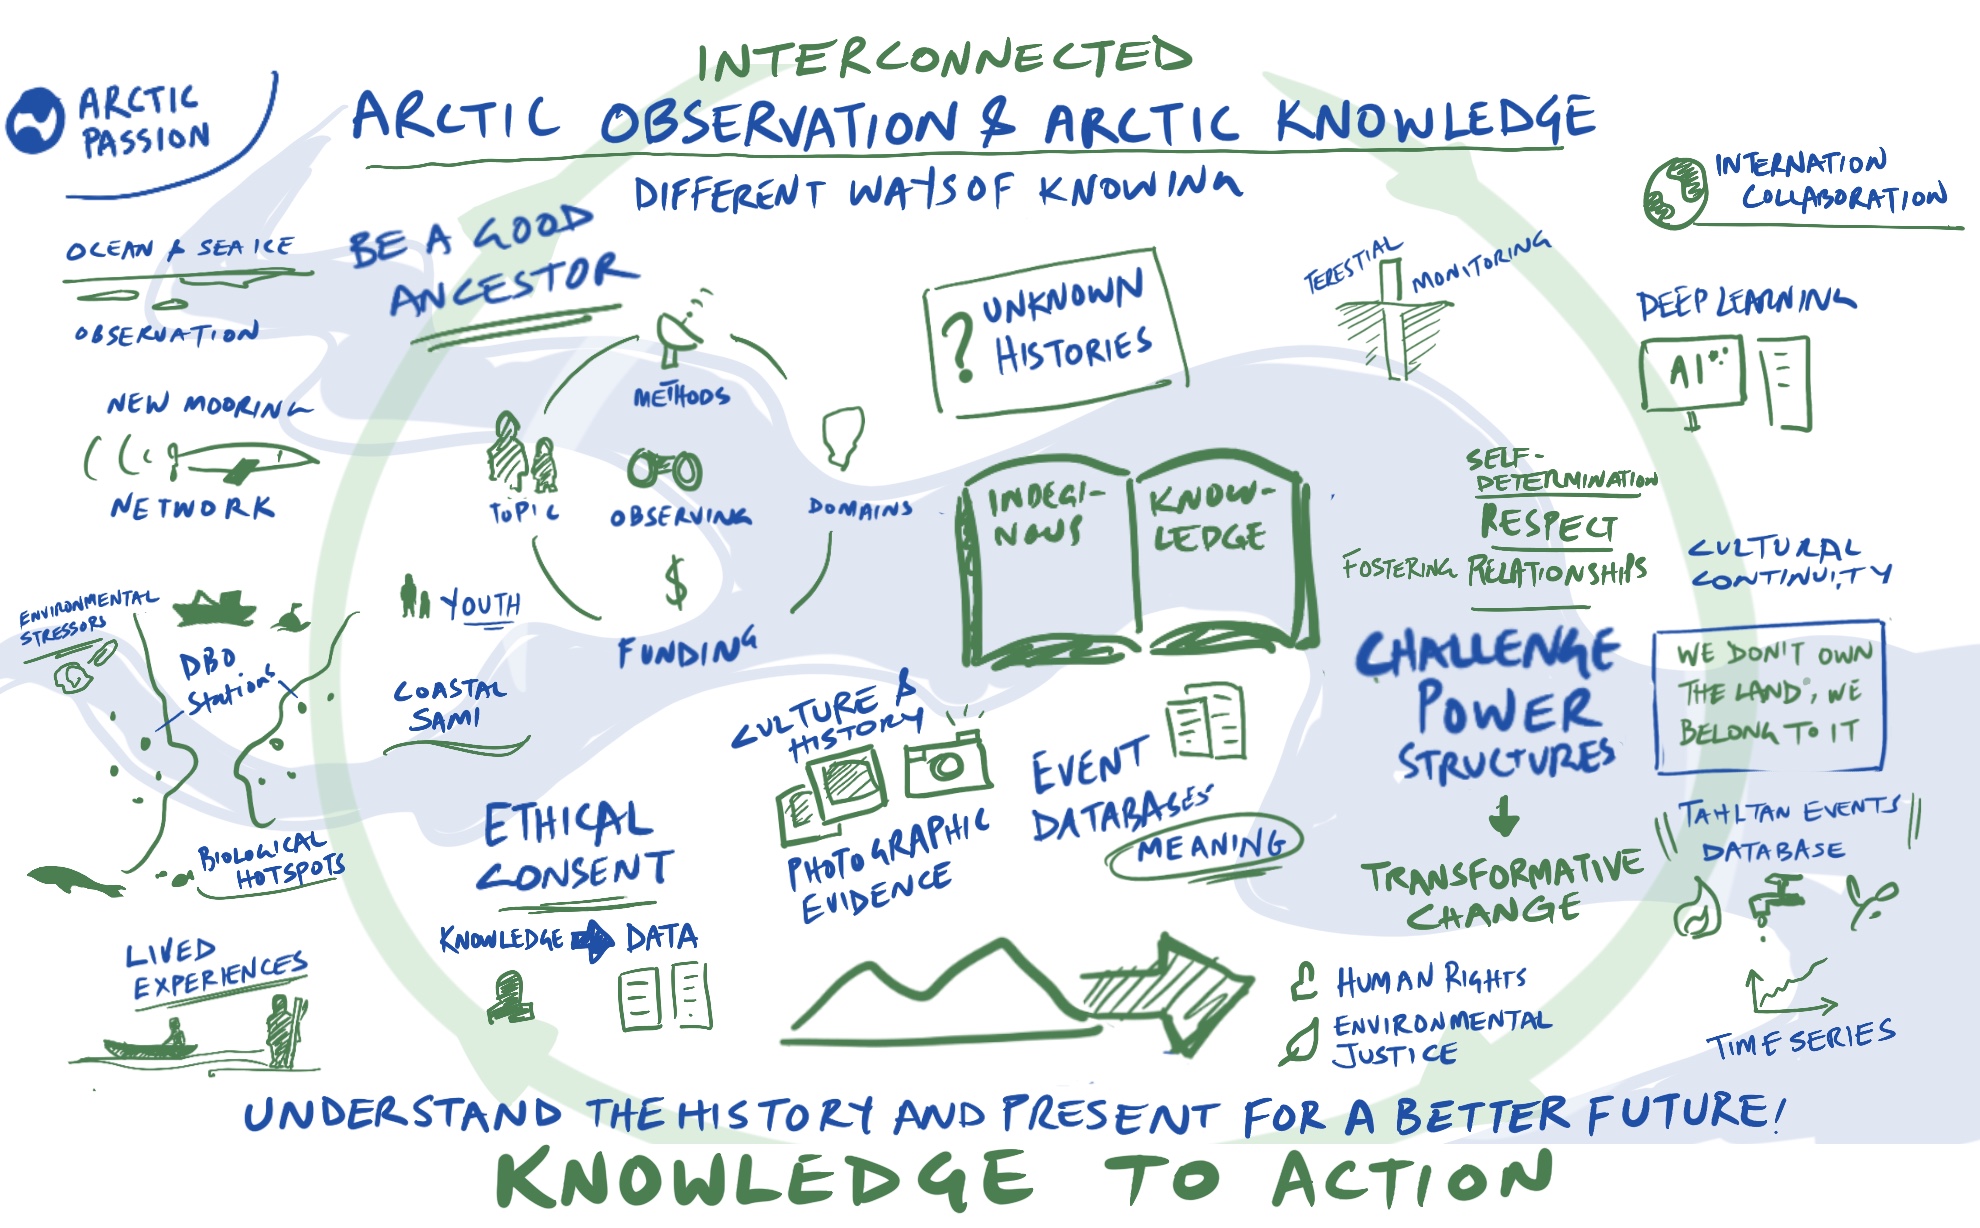 INTERCONNECTED
ARCTIC OBSERVATION & ARCTIC KNOWLEDGE
DIFFERENT WAYS OF KNOWING
ARCTIC
PASSION
INTERNATION
COLLABORATION
OCEAN & SEA ICE
OBSERVATION
BE A GOOD
ANCESTOR
NEW MOORING
NETWORK
METHODS
TOPIC
OBSERVING
DOMAINS
$
FUNDING
? UNKNOWN
HISTORIES
TERESTIAL MONITORING
DEEP LEARNING
AI
INDEGI-
NOUS
KNOW-
LEDGE
SELF-
DETERMINATION
RESPECT
FOSTERING RELATIONSHIPS
CULTURAL
CONTINUITY
ENVIRONMENTAL
STRESSORS
DBO
Stations
YOUTH
COASTAL
SAMI
BIOLOGICAL
HOTSPOTS
CULTURE &
HISTORY
PHOTOGRAPHIC
EVIDENCE
EVENT
DATABASES
MEANING
CHALLENGE
POWER
STRUCTURES
TRANSFORMATIVE
CHANGE
WE DON'T OWN
THE LAND, WE
BELONG TO IT
TAHLTAN EVENTS
DATABASE
TIME SERIES
ETHICAL
CONSENT
KNOWLEDGE DATA
LIVED
EXPERIENCES
HUMAN RIGHTS
ENVIRONMENTAL
JUSTICE
UNDERSTAND THE HISTORY AND PRESENT FOR A BETTER FUTURE!
KNOWLEDGE TO ACTION